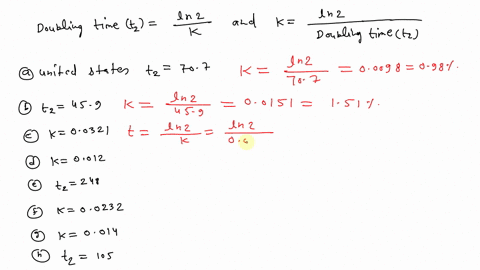 Doubling time (t₂) = ln 2 / K and K = ln 2 / Doubling time (t₂)
ⓐ united states t₂ = 70.7 K = ln 2 / 70.7 = 0.0098 = 0.98 %.
ⓑ t₂ = 45.9 K = ln 2 / 45.9 = 0.0151 = 1.51 %.
ⓒ K = 0.0321 t = ln 2 / K = ln 2 / 0.
ⓓ K = 0.012
ⓔ t₂ = 248
ⓕ K = 0.0232
ⓖ K = 0.014
ⓗ t₂ = 105